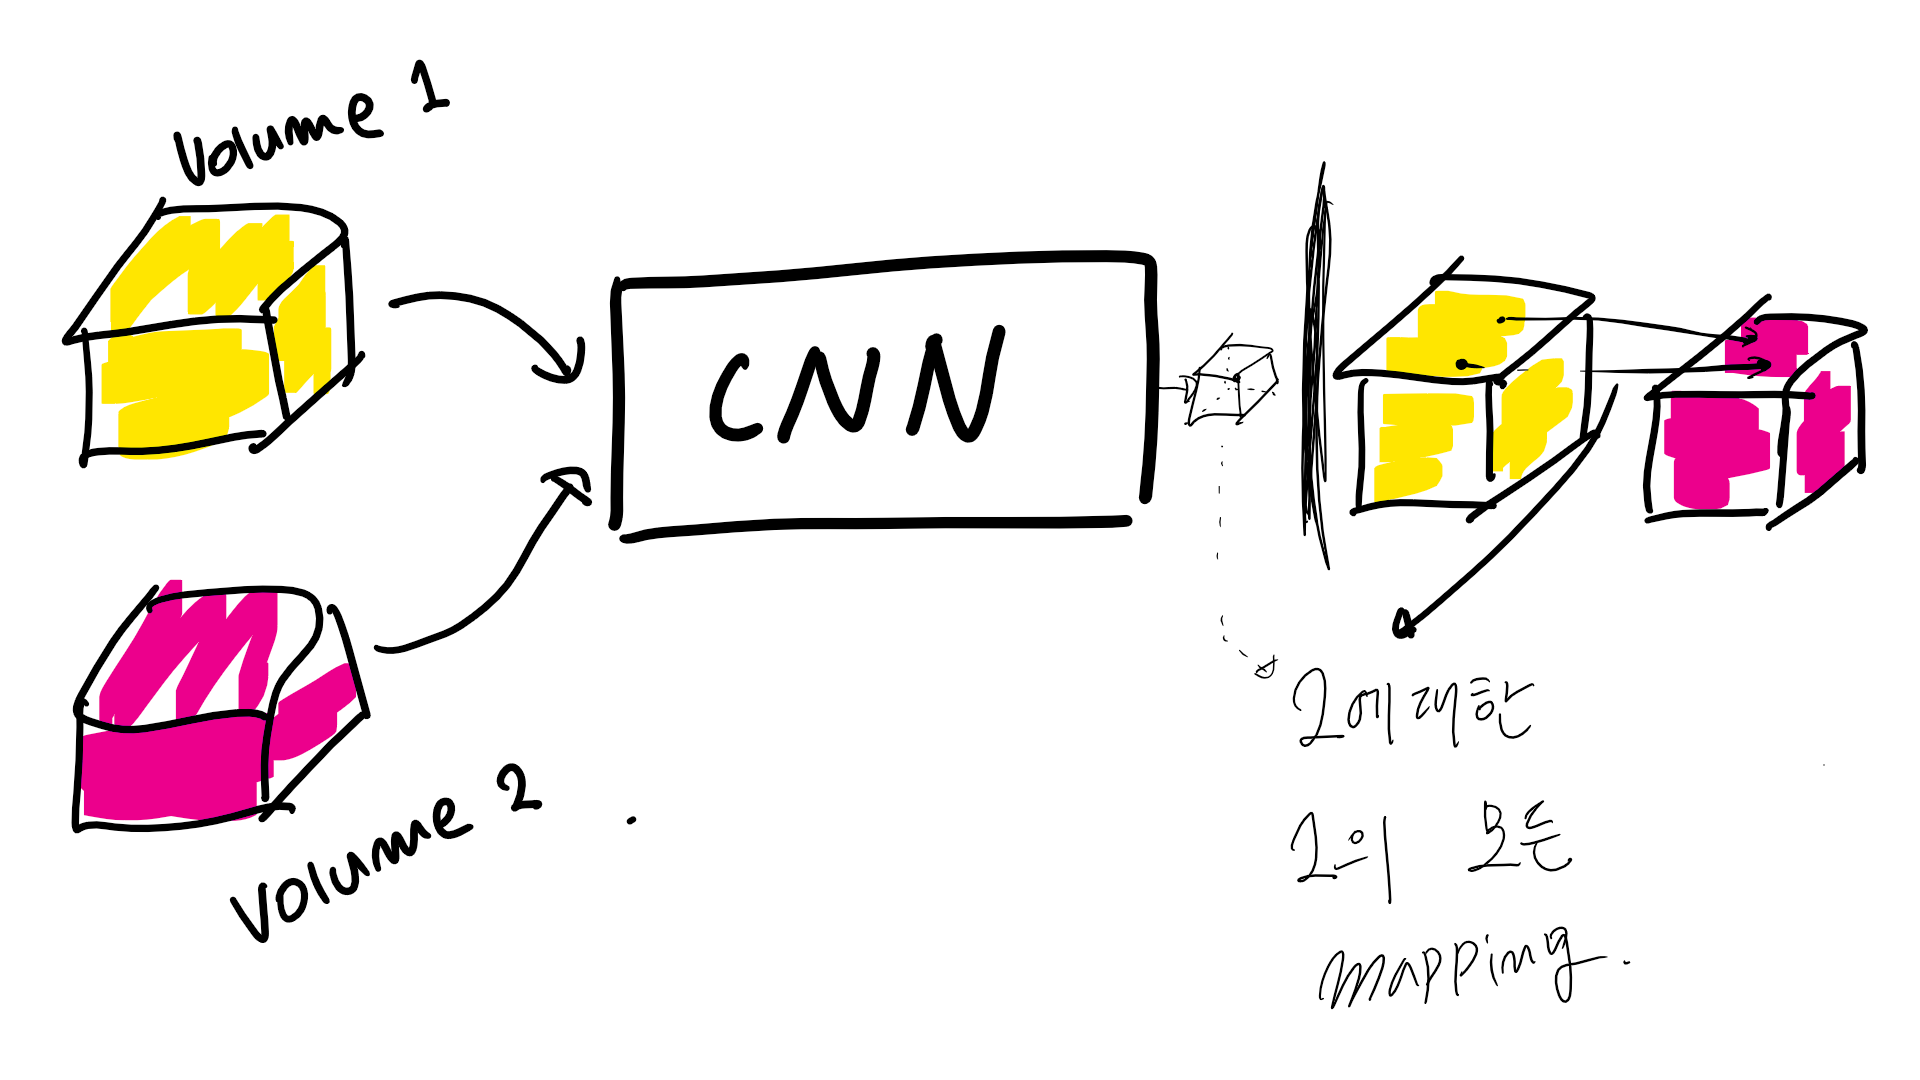 Volume 1
CNN
Volume 2
2에 대한
1의 모든
mapping.